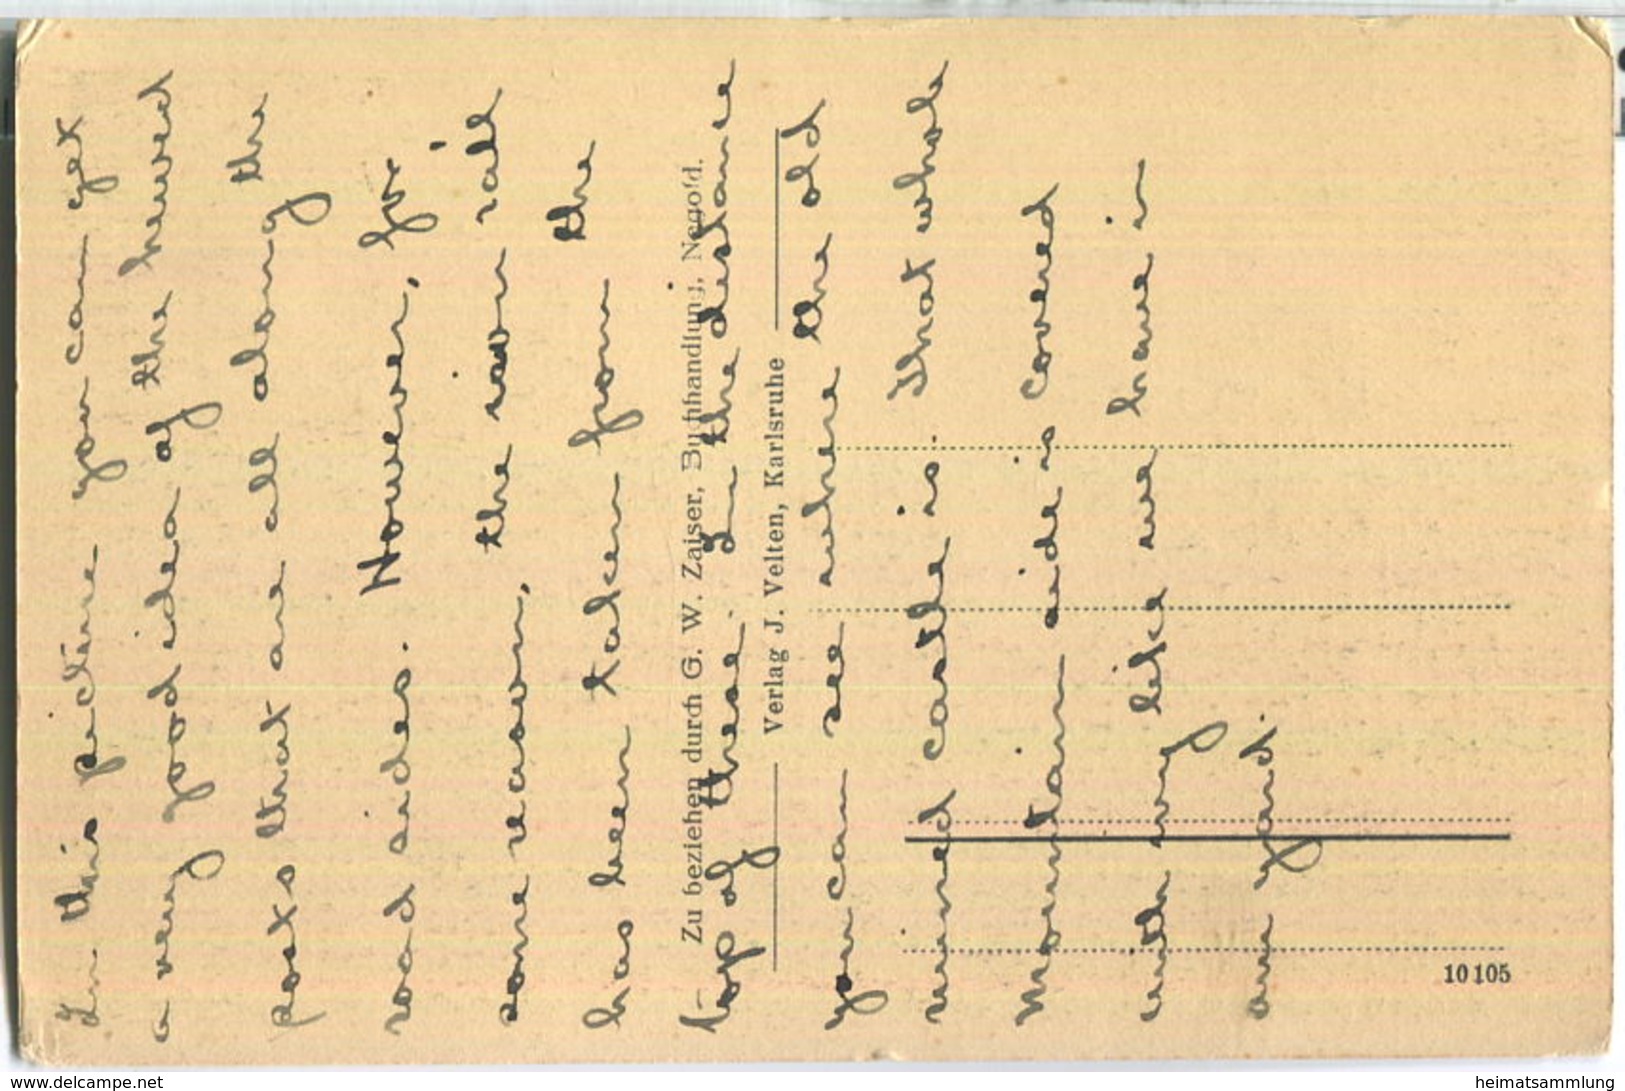 In this picture you can get
a very good idea of the hewed
posts that are all along the
road sides. However, for
some reason, the iron rail
has been taken from the
top of these. In the distance
you can see where the old
ruined castle is. That whole
mountain side is covered
with ivy like we have in
our yard.
Zu beziehen durch G. W. Zaiser, Buchhandlung, Nagold.
Verlag J. Velten, Karlsruhe
10105
www.delcampe.net
heimatsammlung